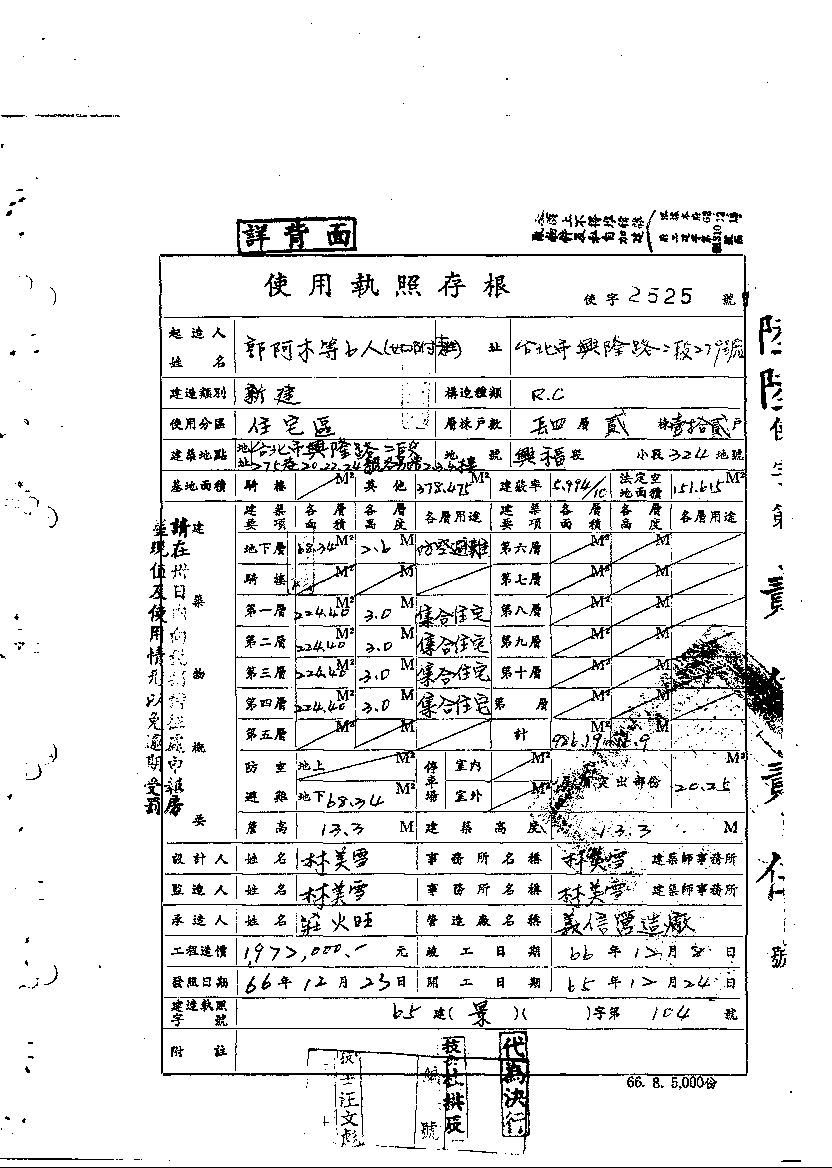 詳背面
使用執照存根
使字2525號
起造人姓名 郭阿木等6人 址 台北市興隆路二段279號
建造類別 新建 構造種類 R.C
使用分區 住宅區 層棟戶數 四層貳棟壹拾貳戶
建築地點 地址 台北市興隆路二段 地號 興福段 小段324地號
基地面積 騎樓 M² 其他 378.475 M² 建蔽率 5.994/10 法定空地面積 151.615 M²
建築概要
建築要項 各層面積 各層高度 各層用途 建築要項 各層面積 各層高度 各層用途
地下層 68.34 M² 2.6 M 防空避難 第六層 M² M
騎樓 M² M 第七層 M² M
第一層 224.40 M² 3.0 M 集合住宅 第八層 M² M
第二層 224.40 M² 3.0 M 集合住宅 第九層 M² M
第三層 224.40 M² 3.0 M 集合住宅 第十層 M² M
第四層 224.40 M² 3.0 M 集合住宅 第 層 M² M
第五層 M² M 計 M² M
防空避難 地上 M² 停車場 室內 M² 突出部份 20.25 M²
地下 68.34 M² 室外 M²
簷高 13.3 M 建築高度 13.3 M
設計人 姓名 林美雪 事務所名稱 林美雪 建築師事務所
監造人 姓名 林美雪 事務所名稱 林美雪 建築師事務所
承造人 姓名 莊火旺 營造廠名稱 義信營造廠
工程造價 1,972,000.- 元 竣工日期 66年12月8日
發照日期 66年12月23日 開工日期 65年12月24日
建造執照字號 65建(景)( )字第104號
附註
代為決行
技士汪文彪
編號
66. 8. 5,000份